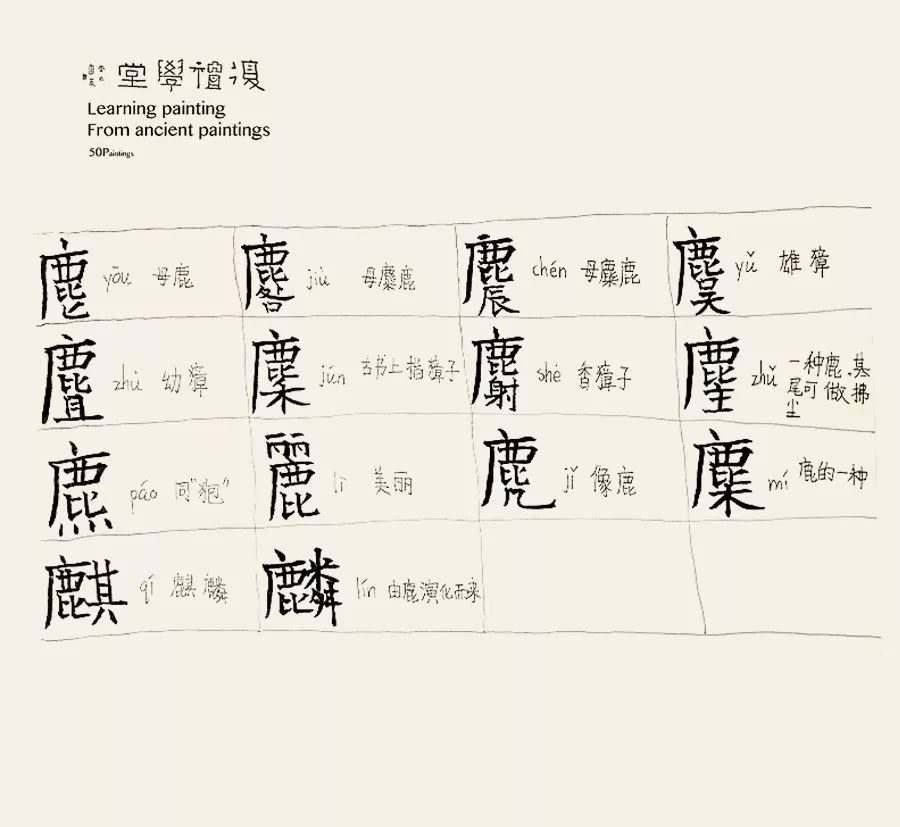 復禮學堂
Learning painting
From ancient paintings
50Paintings
麀 yōu 母鹿
麔 jiù 母麋鹿
麎 chén 母麋鹿
麌 yǔ 雄獐
麆 zhù 幼獐
麇 jūn 古书上指獐子
麝 shè 香獐子
麈 zhǔ 一种鹿,其
尾可做拂
尘
麃 páo 同“狍”
麗 lì 美丽
麂 jǐ 像鹿
麋 mí 鹿的一种
麒 qí 麒麟
麟 lín 由鹿演化而来